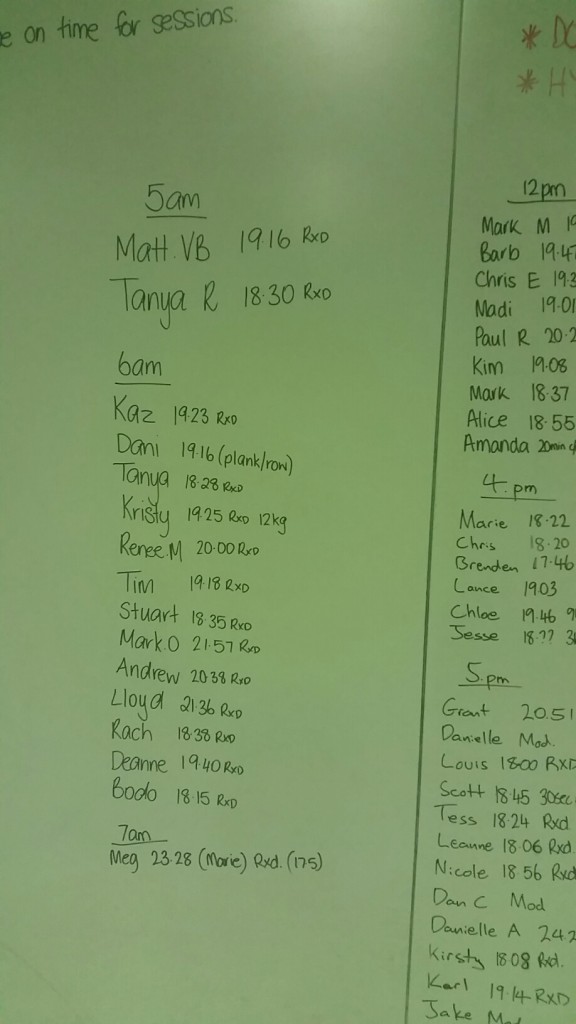 e on time for sessions.
5am
Matt.VB 19.16 RxD
Tanya R 18.30 RxD
6am
Kaz 19.23 RxD
Dani 19.16 (plank/row)
Tanya 18.28 RxD
Kristy 19.25 RxD 12kg
Renee.M 20.00 RxD
Tim 19.18 RxD
Stuart 18.35 RxD
Mark.O 21.57 RxD
Andrew 20.38 RxD
Lloyd 21.36 RxD
Rach 18.38 RxD
Deanne 19.40 RxD
Bodo 18.15 RxD
7am
Meg 23.28 (Marie) Rxd. (175)
* DO
* HY
12pm
Mark M 19
Barb 19.47
Chris E 19.3
Madi 19.01
Paul R 20.2
Kim 19.08
Mark 18.37
Alice 18.55
Amanda 20min
4.pm
Marie 18.22
Chris 18.20
Brenden 17.46
Lance 19.03
Chloe 19.46 9
Jesse 18.?? 3
5.pm
Grant 20.51
Danielle Mod.
Louis 18.00 RXD
Scott 18.45 30sec
Tess 18.24 Rxd
Leanne 18.06 Rxd
Nicole 18.56 Rxd
Dan C Mod
Danielle A 24.2
Kirsty 18.08 Rxd.
Karl 19.14 RXD
Jake Mod